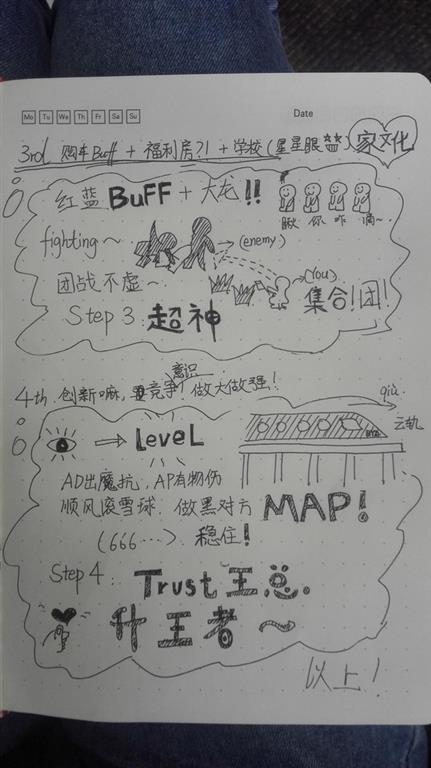 Mo Tu We Th Fr Sa Su
Date
3rd 购车Buff + 福利房?! + 学校(星星眼) 家文化
红蓝 BUFF + 大龙!!
瞅你咋滴~
fighting~
(enemy)
团战不虚~
(You)
集合!团!
Step 3: 超神
4th. 创新嘛, 要竞争意识 做大做强!
giù~
云轨
⇒ LeveL
AD出魔抗, AP有物伤
顺风滚雪球. 做黑对方 MAP!
(666…) 稳住!
Step 4: Trust 王总.
升王者~
以上!